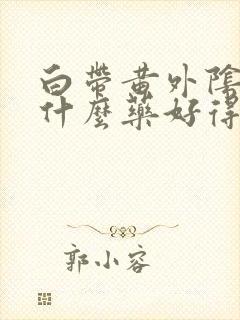 白帶黄外陰
什麼藥好得
郭小容